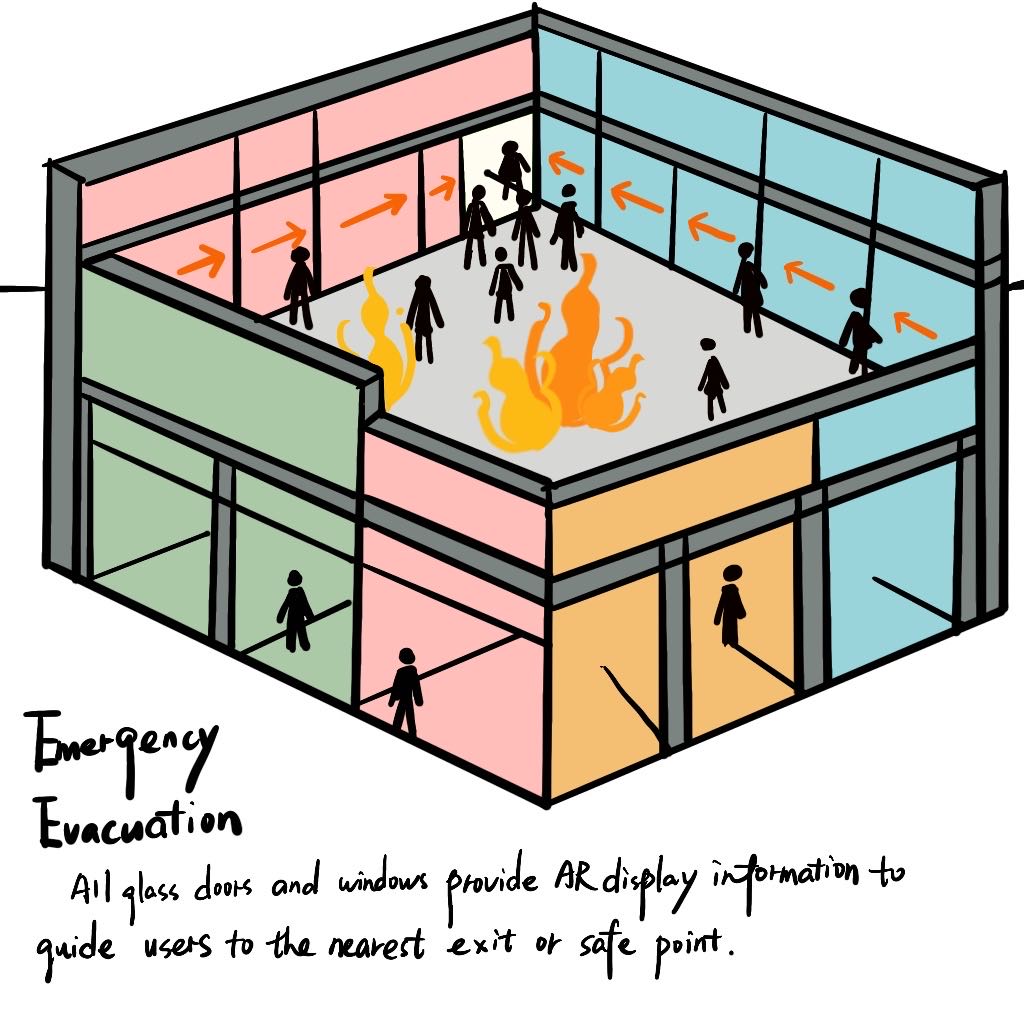 Emergency
Evacuation
All glass doors and windows provide AR display information to
guide users to the nearest exit or safe point.